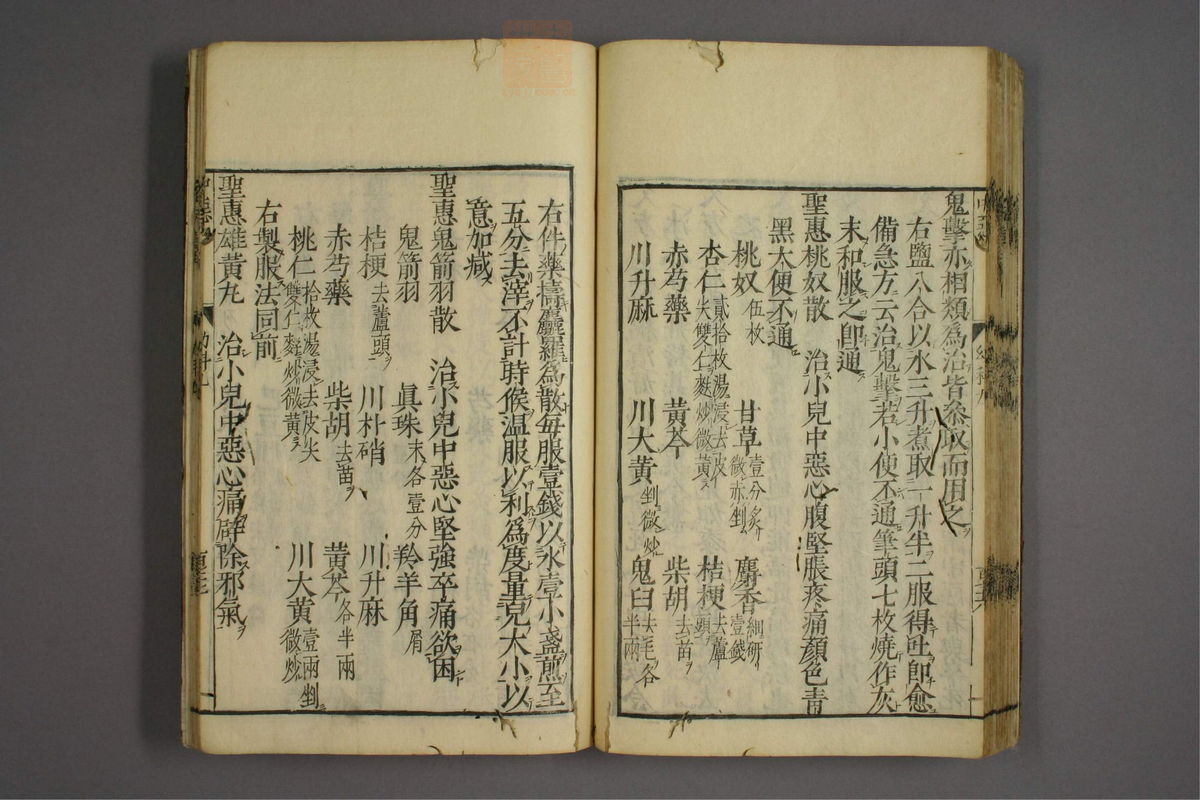 鬼擊亦相類爲治皆叅取而用之
右鹽八合以水三升煮取一升半二服得吐即愈
備急方云治鬼擊若小便不通筆頭七枚燒作灰
末和服之即通
聖惠桃奴散 治小兒中惡心腹堅脹疼痛顏色青
黑大便不通
桃奴伍枚 甘草壹分炙微赤剉 麝香細研壹錢
杏仁貳拾枚湯浸去皮尖雙仁麩炒微黃 桔梗去蘆頭
赤芍藥 黃芩 柴胡去苗
川升麻 川大黃剉微炒 鬼臼去毛各半兩
右件藥擣麤羅爲散每服壹錢以水壹小盞煎至
五分去滓不計時候温服以利爲度量兒大小以
意加減
聖惠鬼箭羽散 治小兒中惡心堅強卒痛欲困
鬼箭羽 眞珠末各壹分 羚羊角屑
桔梗去蘆頭 川朴硝 川升麻
赤芍藥 柴胡去苗 黃芩各半兩
桃仁拾枚湯浸去皮尖雙仁麩炒微黃 川大黃壹兩剉微炒
右製服法同前
聖惠雄黃丸 治小兒中惡心痛辟除邪氣